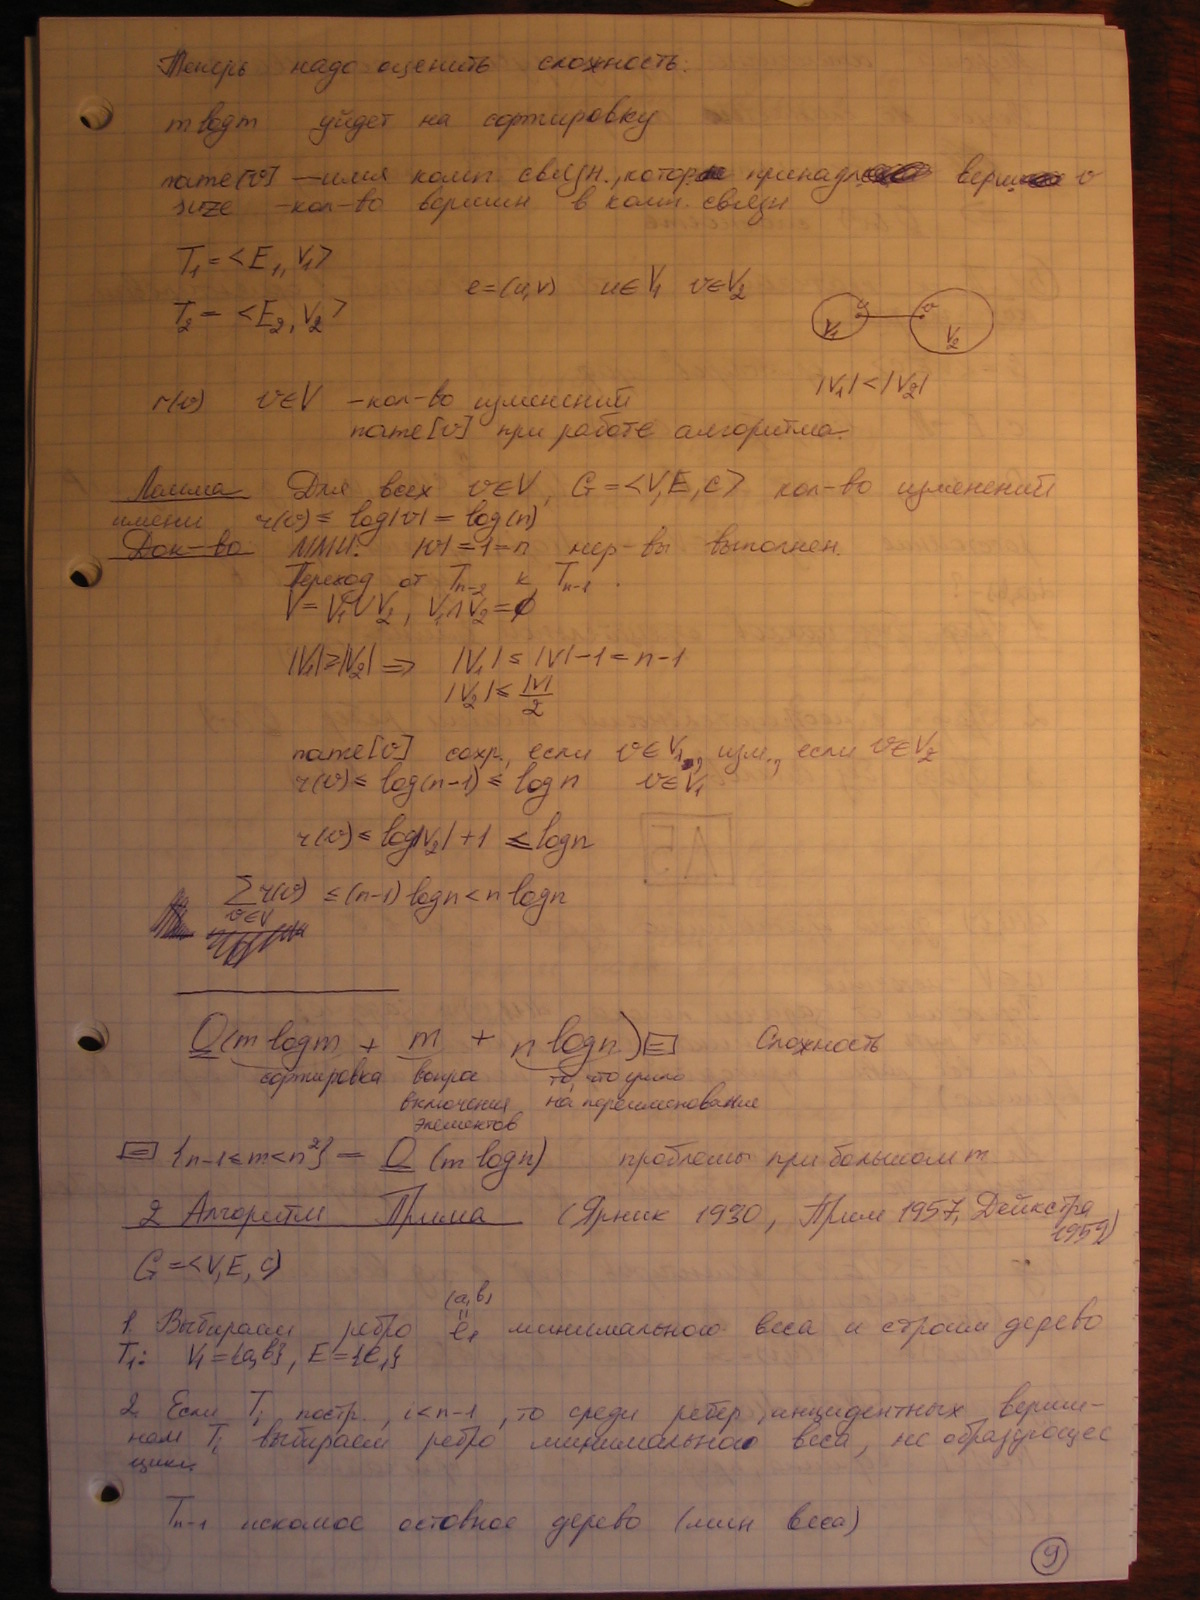 Теперь надо оценить сложность:
m logm уйдет на сортировку
name[v] — имя комп. связн., котор принадл верш v
size - кол-во вершин в комп. связн
T₁ = <E₁, V₁>
e=(u,v) u∈V₁ v∈V₂
T₂ = <E₂, V₂>
u v
V₁ V₂
|V₁| < |V₂|
r(v) v∈V - кол-во изменений
name[v] при работе алгоритма.
Лемма Для всех v∈V, G=<V,E,c> кол-во изменений
имени r(v) ≤ log|V| = log(n)
Док-во ММИ. |V|=1=n нер-вы выполнен.
Переход от Tₙ₋₂ к Tₙ₋₁.
V = V₁∪V₂, V₁∩V₂=∅
|V₁|≥|V₂| => |V₁| ≤ |V|-1 = n-1
|V₂| ≤ |V|/2
name[v] сохр., если v∈V₁, изм., если v∈V₂
r(v) ≤ log(n-1) ≤ logn v∈V₁
r(v) ≤ log|V₂|+1 ≤ logn
∑ r(v) ≤ (n-1) logn < n logn
v∈V
O(m logm + m + n logn) = Сложность
сортировка вопрос то, что ушло
включения на переименование
элементов
= {n-1≤m<n²} = O (m logn) проблемы при большом m
2 Алгоритм Прима (Ярник 1930, Прим 1957, Дейкстра
1959)
G=<V,E,c>
(a,b)
1. Выбираем ребро e₁ минимального веса и строим дерево
T₁: V₁={a,b}, E={e₁}
2. Если Tᵢ постр., i<n-1, то среди ребер, инцидентных верши-
нам Tᵢ выбираем ребро минимального веса, не образующее
цикл.
Tₙ₋₁ искомое остовное дерево (мин веса)
9